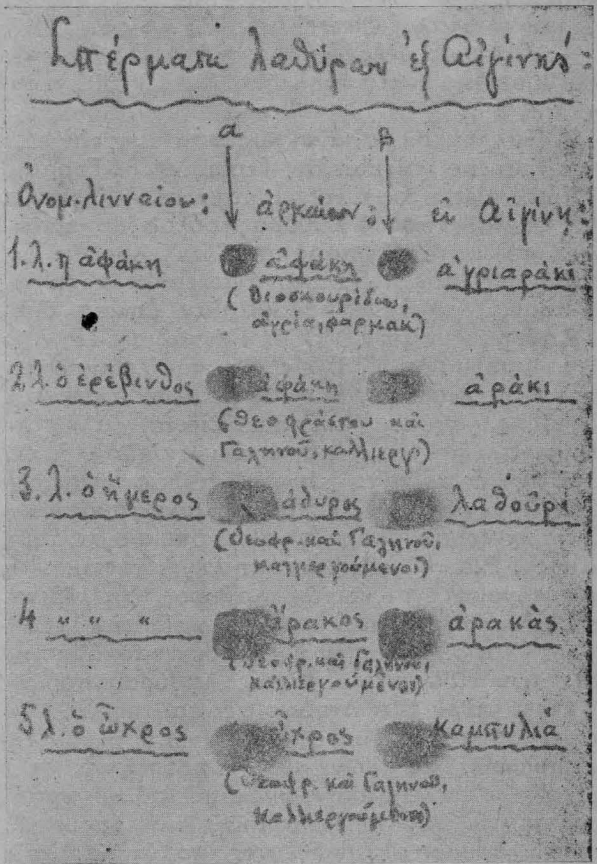 Σπέρματα λαθύρων ἐξ Αἰγίνης:
α β
Ὀνομ. λινναίου: ἀρχαίων: ἐν Αἰγίνῃ:
1. λ. ἡ ἀφάκη ἀφάκη ἀγριαράκι
(Διοσκουρίδου,
ἀγρία, φαρμακ)
2. λ. ὁ ἐρέβινθος ἀφάκη ἀράκι
(Θεοφράστου καὶ
Γαληνοῦ, καλλιεργ.)
3. λ. ὁ ἥμερος λάθυρος λαθοῦρι
(Θεοφρ. καὶ Γαληνοῦ,
καλλιεργούμενοι)
4 " " " ἄρακος ἀρακὰς
(Θεοφρ. καὶ Γαληνοῦ,
καλλιεργούμενοι)
5 λ. ὁ ὦχρος ὦχρος καμπυλιά
(Θεοφρ. καὶ Γαληνοῦ,
καλλιεργούμενοι)